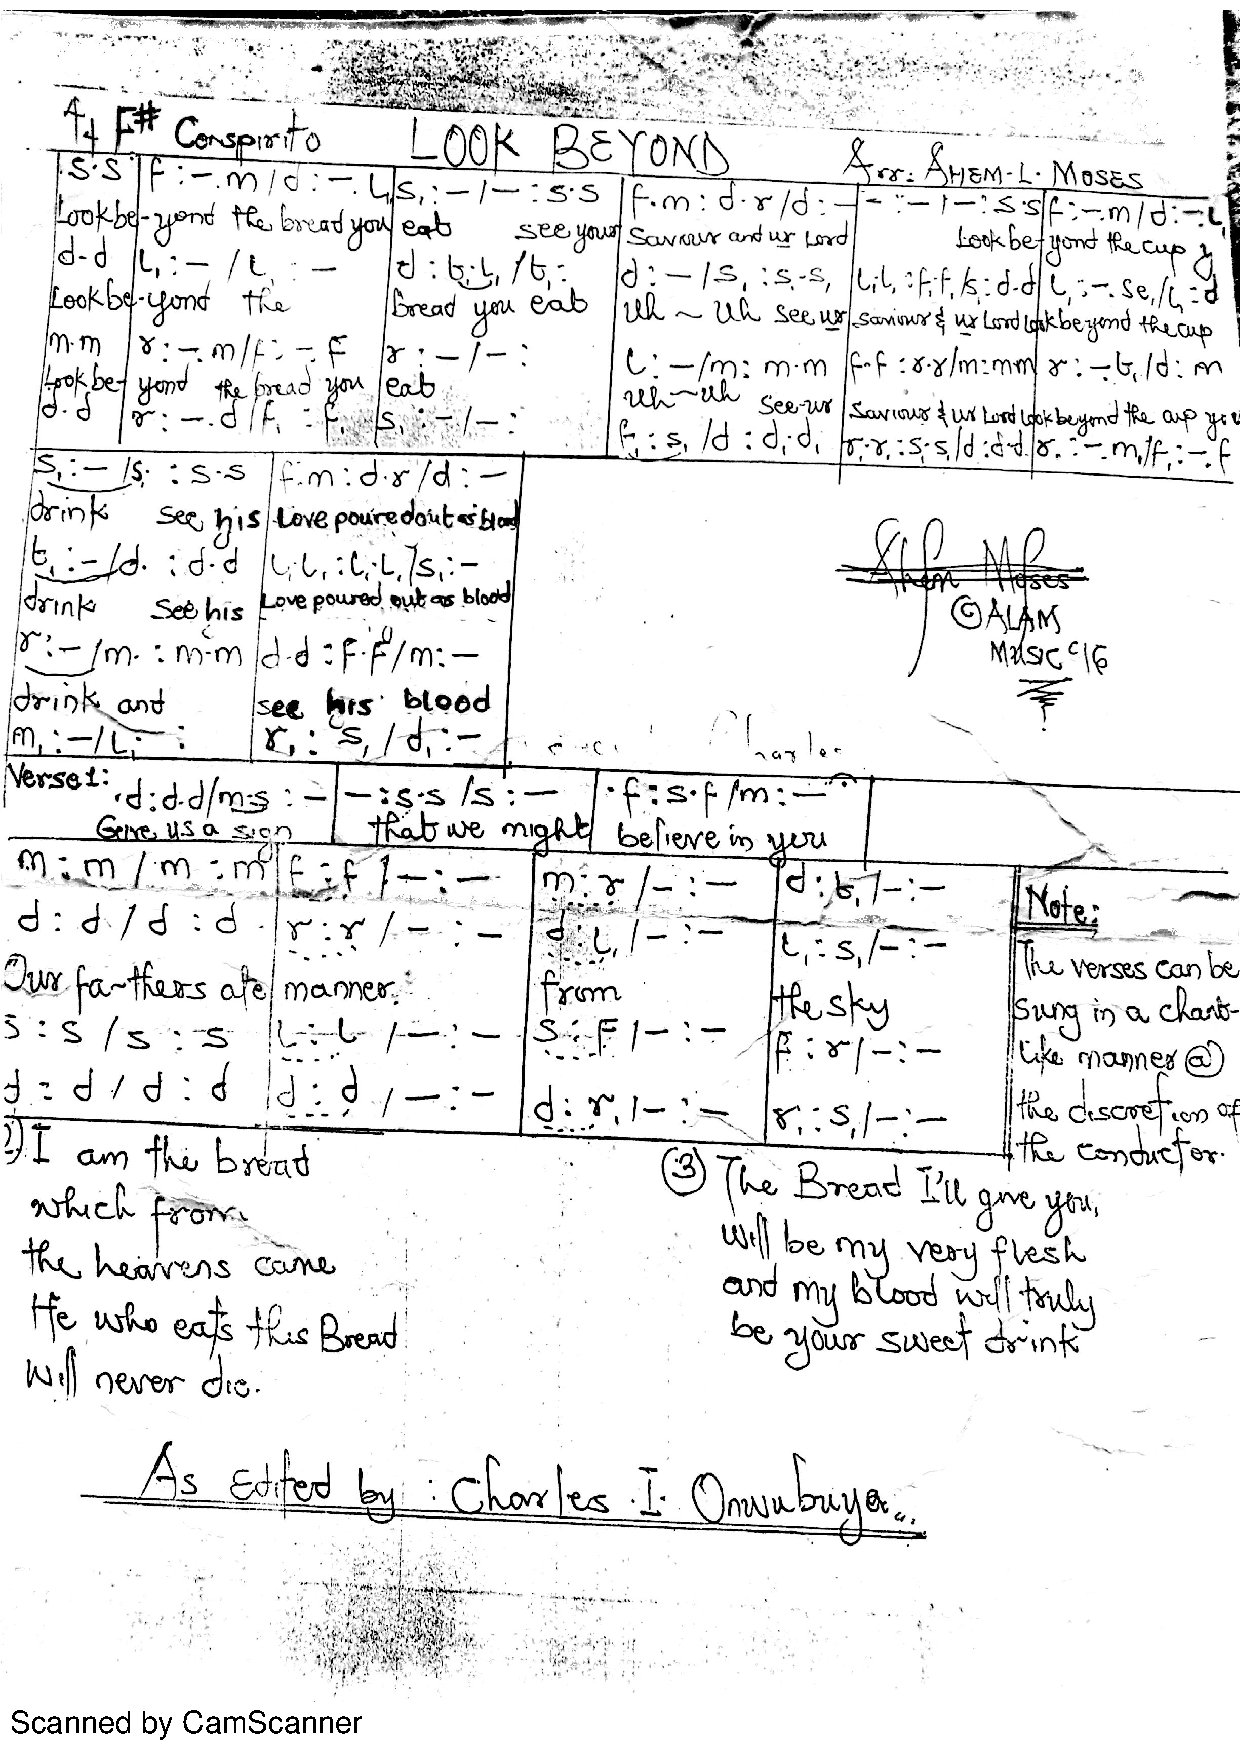 4/4 F# Conspirito LOOK BEYOND Arr: AHEM. L. MOSES
:s.s | f :-.m / d :-.l, | s, :- / - : s.s | f.m : d.r / d :- | - :- / - : s.s | f :-.m / d :-.l,
Look be-yond the bread you eat see your Saviour and ur Lord Look be-yond the cup y
d.d | l, :- / l, :- | d : t,.l, / t, : | d :- / s, : s,.s, | l,.l, : f,.f, / s, : d.d | l, :-.se, / l, : d
Look be-yond the bread you eat Uh ~ Uh see ur Saviour & ur Lord Look beyond the cup
m.m | r :-.m / f :-.f | r :- / - : | l :- / m : m.m | f.f : r.r / m : m.m | r :-.t, / d : m
Look be-yond the bread you eat Uh ~ Uh see ur Saviour & ur Lord Look beyond the cup you
d.d | r :-.d / f, : f, | s, :- / - : | f, : s, / d : d,.d, | r,.r, : s,.s, / d : d.d | r, :-.m, / f, :-.f
s, :- / s, : s.s | f.m : d.r / d :-
drink see his Love poured out as blood
t, :- / d. : d.d | l,.l, : l,.l, / s, :-
drink see his Love poured out as blood
r :- / m. : m.m | d.d : f.f / m :-
drink and see his blood
m, :- / l, :- : | r, : s, / d, :-
Ahem Moses
©ALAM
Music '16
Charles
Verse 1: .d : d.d / m.s :- | - : s.s / s :- | .f : s.f / m :-
Give us a sign that we might believe in you
m : m / m : m | f : f / - :- | m : r / - :- | d : t, / - :-
d : d / d : d | r : r / - :- | d : l, / - :- | l, : s, / - :-
Our fa~thers ate manner. from the sky
s : s / s : s | l : l / - :- | s : f / - :- | f : r / - :-
d : d / d : d | d : d / - :- | d : r, / - :- | r, : s, / - :-
Note:
The verses can be
sung in a chant-
like manner @
the discretion of
the conductor.
2) I am the bread
which from
the heavens came
He who eats this Bread
will never die.
(3) The Bread I'll give you,
will be my very flesh
and my blood will truly
be your sweet drink
As Edited by : Charles .I. Onwubuya...
Scanned by CamScanner